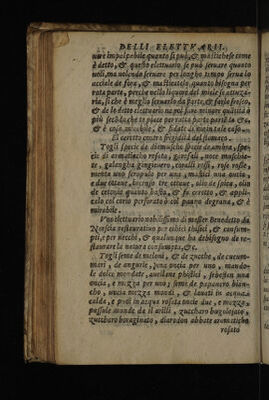 DELLI ELETTVARII.
è detto, & questo elettuario se può seruare quanto
voli, ma volendo seruare per longho tempo serua lo
rota parte, perche nella liquore del mele
ria, si che è meglio seruarlo da parte, & farlo fresco,
& de lo detto elettuario ne può pare minore quãtità
più secõdo che te piace per rata parte
& è cosa mirabile, & fidate di me in tale caso
El cerotto contra frigidità del stomaco.
Togli specie de diambra, specie de ambra, spe-
cie di aromatico rosato, garofali, noce moschia-
te, galengha, gengiouero, coralli rossi, rose rosse,
menta vno scropulo per vna, mastici vna ontia,
e due ottaue, incenso tre ottaue, olio de spica, olio
de cotogni quanto basta, & fa cerotto, & applica-
celo col corio perforato & col panno degrana, & è
mirabile.
Vno elettuario nobilissimo di messer Benedetto da
Norscia restauratiuo per ethici thisici, & consump-
ti, e per vecchi, & qualunque ha debisogno de re-
staurare la natura consumpta, &c.
Togli seme de meloni, & de zucche, de cucum-
meri, de angurie, iuna oncia per vno, mando-
le dolce mondate, auellane, phistici, sebesten vna
oncia, e mezza per vno, seme de papauero bian-
cho, vncia mezza mondi, & lauati in acqua
calda, e poi in acqua rosata vncie due, e mezza,
passule monde da li arilli, zucchero buglossato,
zucchero boraginato, diarodon abbate aromatico
rosato